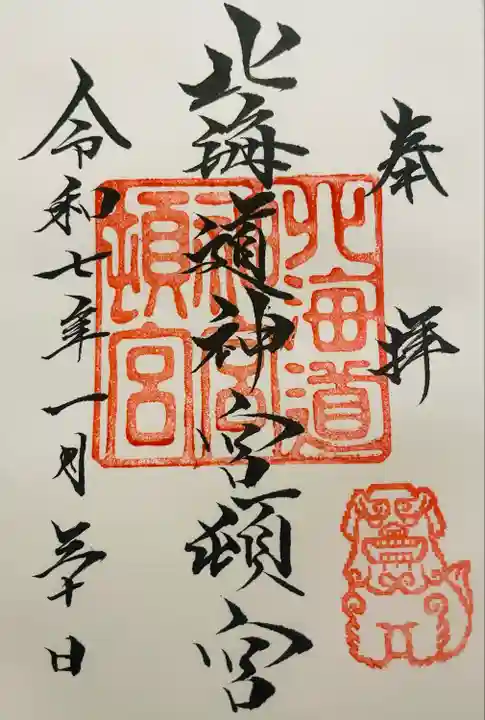 奉拝
北海道神宮頓宮
令和七年一月三十日
北海道
神宮
頓宮